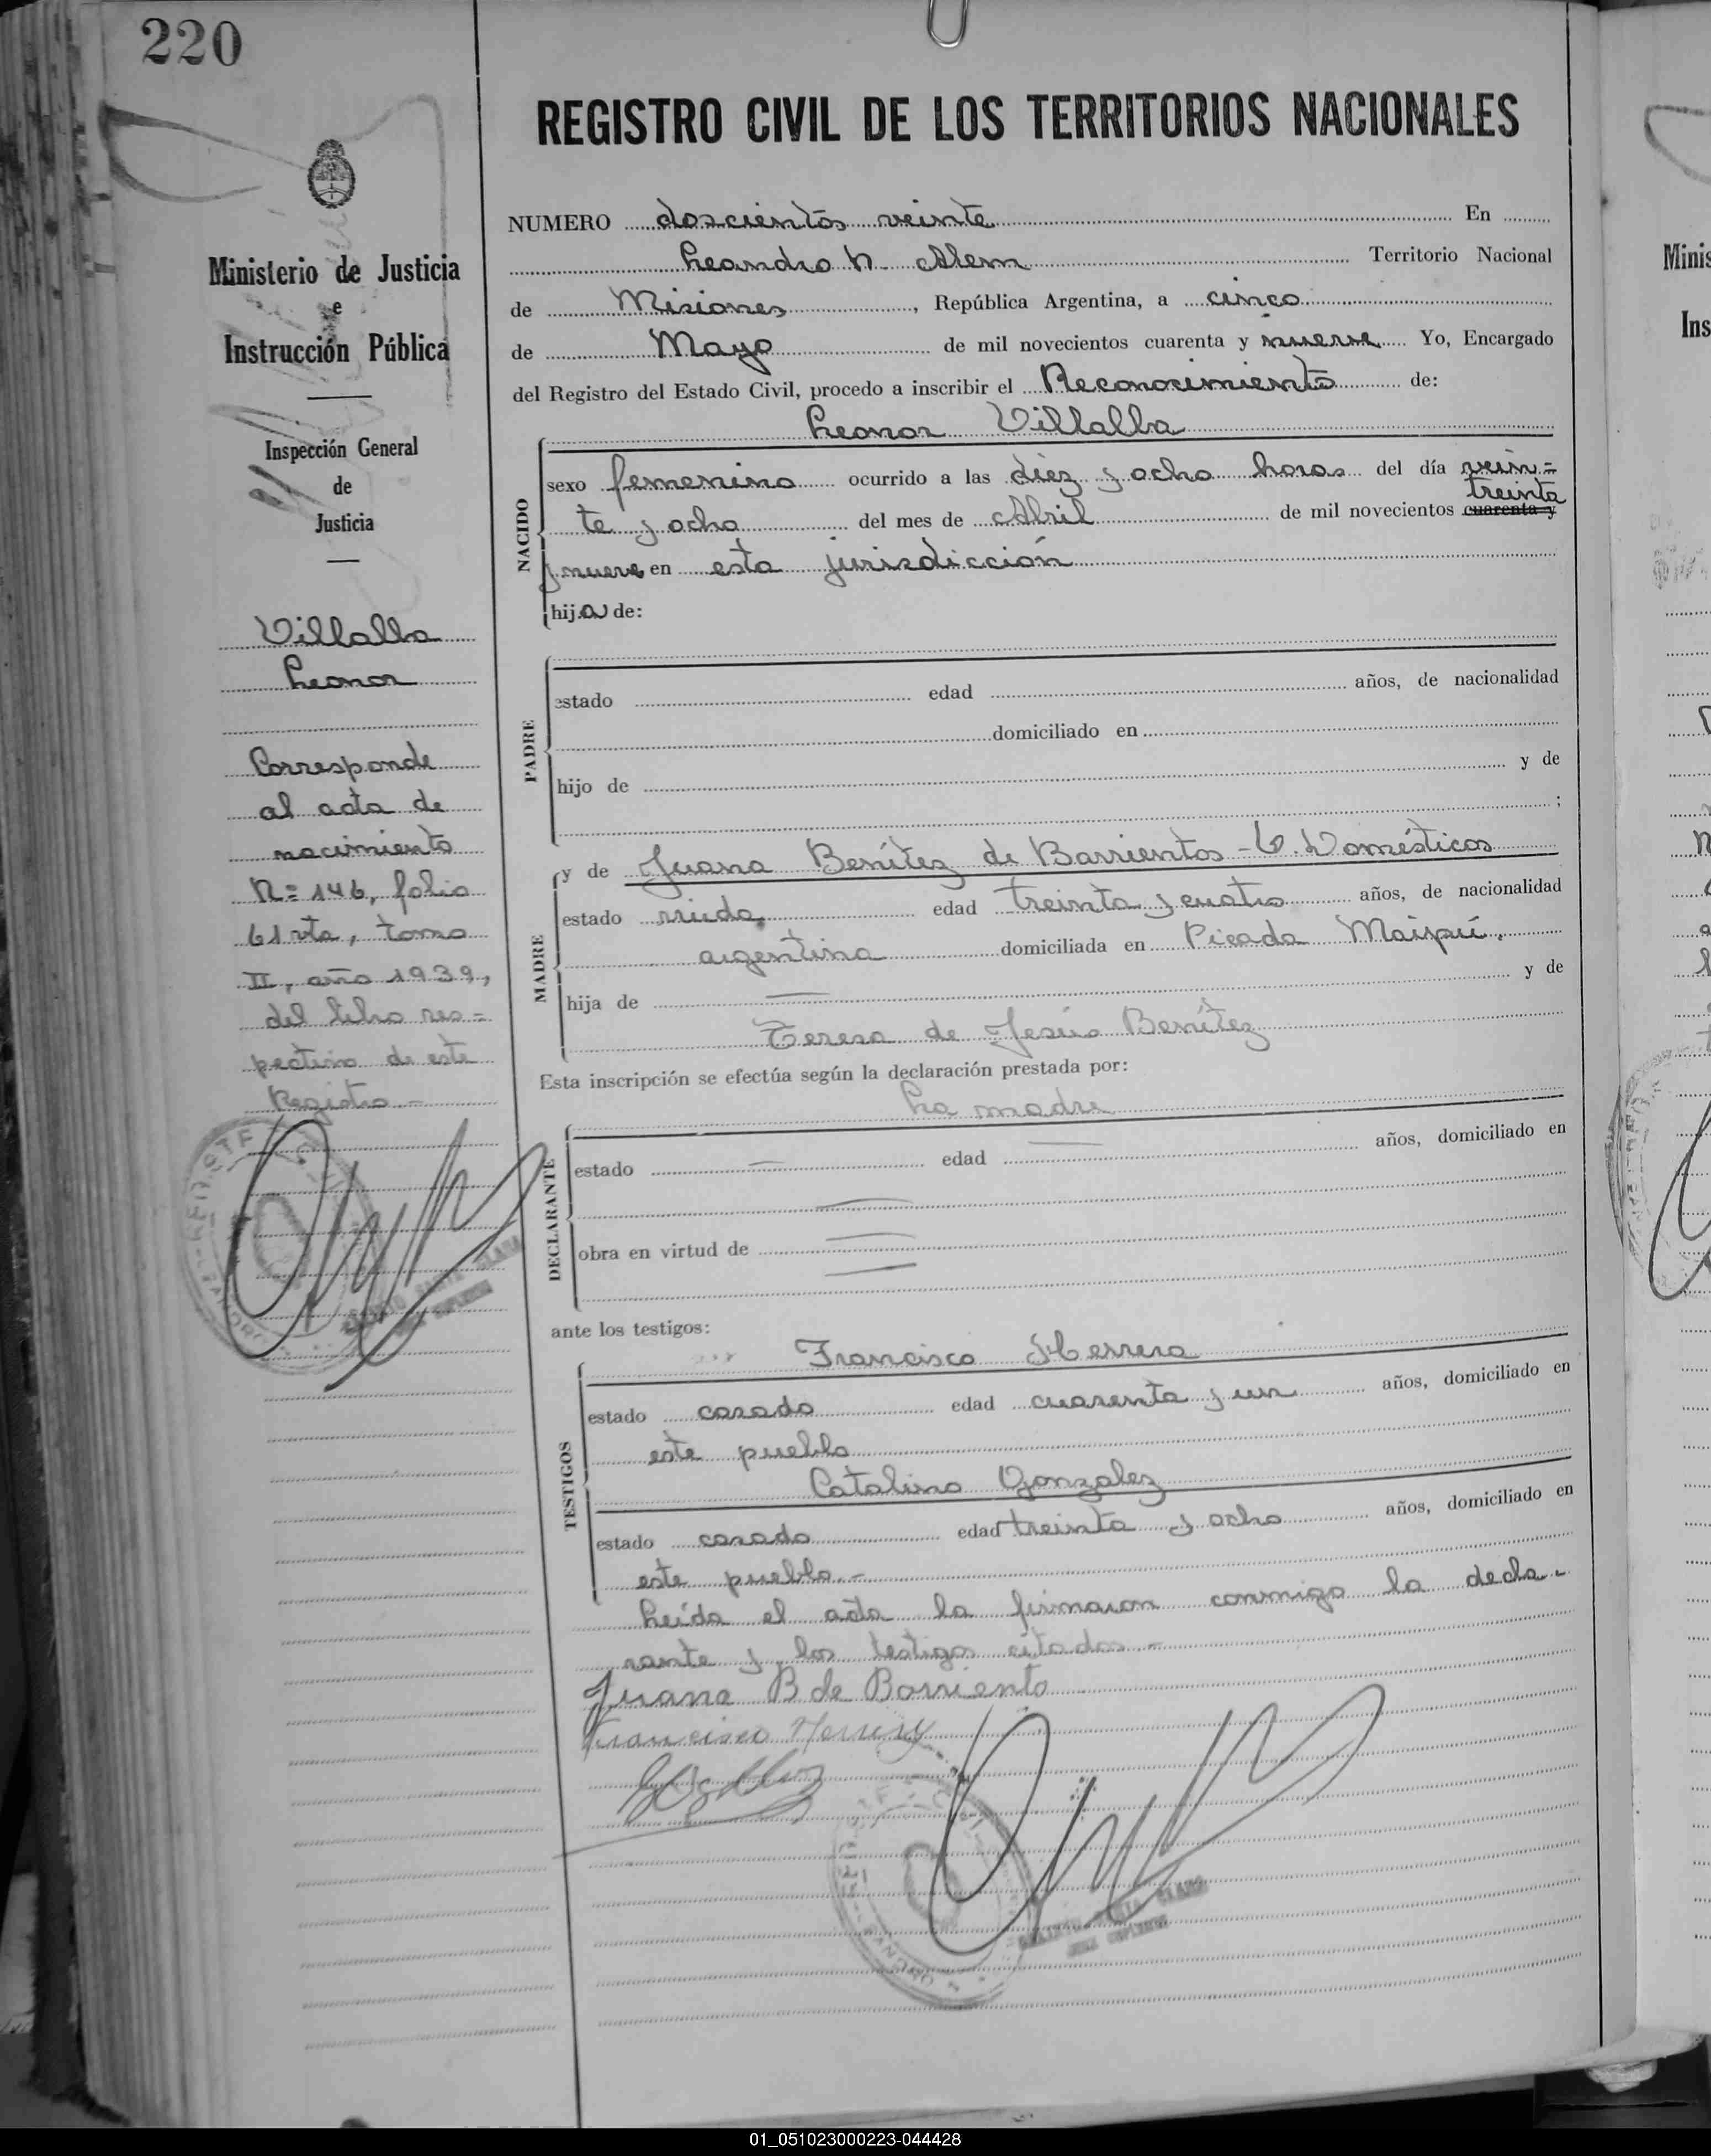 220
REGISTRO CIVIL DE LOS TERRITORIOS NACIONALES
Ministerio de Justicia
e
Instrucción Pública
Inspección General
de
Justicia
Villalba
Leonor
Corresponde
al acta de
nacimiento
N= 146, folio
61 vta, tomo
II, año 1939,
del libro res=
pectivo de este
Registro.-
NUMERO doscientos veinte En
Leandro N. Alem Territorio Nacional
de Misiones, República Argentina, a cinco
de Mayo de mil novecientos cuarenta y nueve Yo, Encargado
del Registro del Estado Civil, procedo a inscribir el Reconocimiento de:
Leonor Villalba
NACIDO
sexo femenino ocurrido a las diez y ocho horas del día vein=
treinta
te y ocho del mes de Abril de mil novecientos cuarenta y
y nueve en esta jurisdicción
hija de:
PADRE
estado edad años, de nacionalidad
domiciliado en
hijo de y de
;
y de Juana Benítez de Barrientos - Q. Domésticos
MADRE
estado viuda edad treinta y cuatro años, de nacionalidad
argentina domiciliada en Picada Maipú.
hija de — y de
Teresa de Jesús Benítez
Esta inscripción se efectúa según la declaración prestada por:
La madre
DECLARANTE
estado — edad — años, domiciliado en
obra en virtud de
ante los testigos:
Francisco Herrera
TESTIGOS
estado casado edad cuarenta y un años, domiciliado en
este pueblo
Catalino Gonzalez
estado casado edad treinta y ocho años, domiciliado en
este pueblo.-
Leída el acta la firmaron conmigo la decla-
rante y los testigos citados.-
Juana B de Barriento
Francisco
01_051023000223-044428